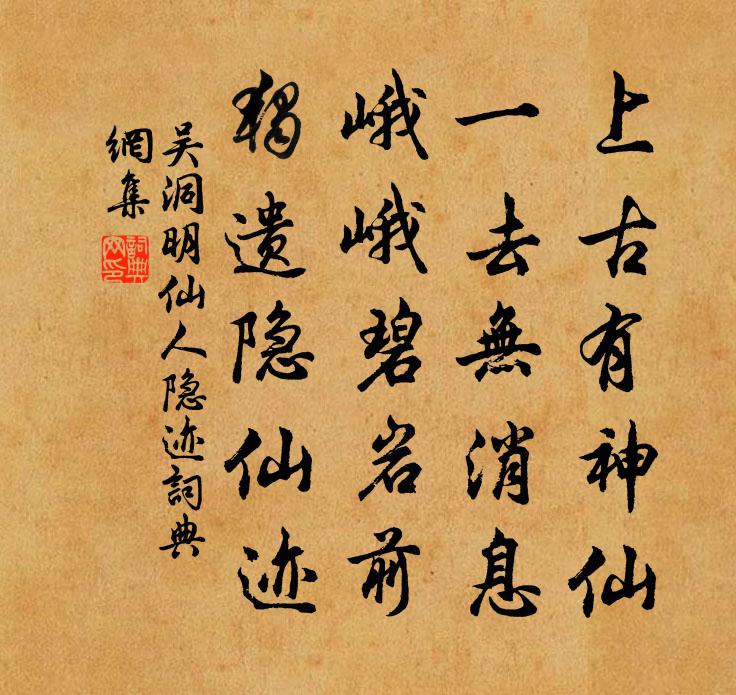 上古有神仙
一去無消息
峨峨碧岩前
獨遺隐仙迹
吴洞明仙人隐迹詞典
網集
詞典
网印